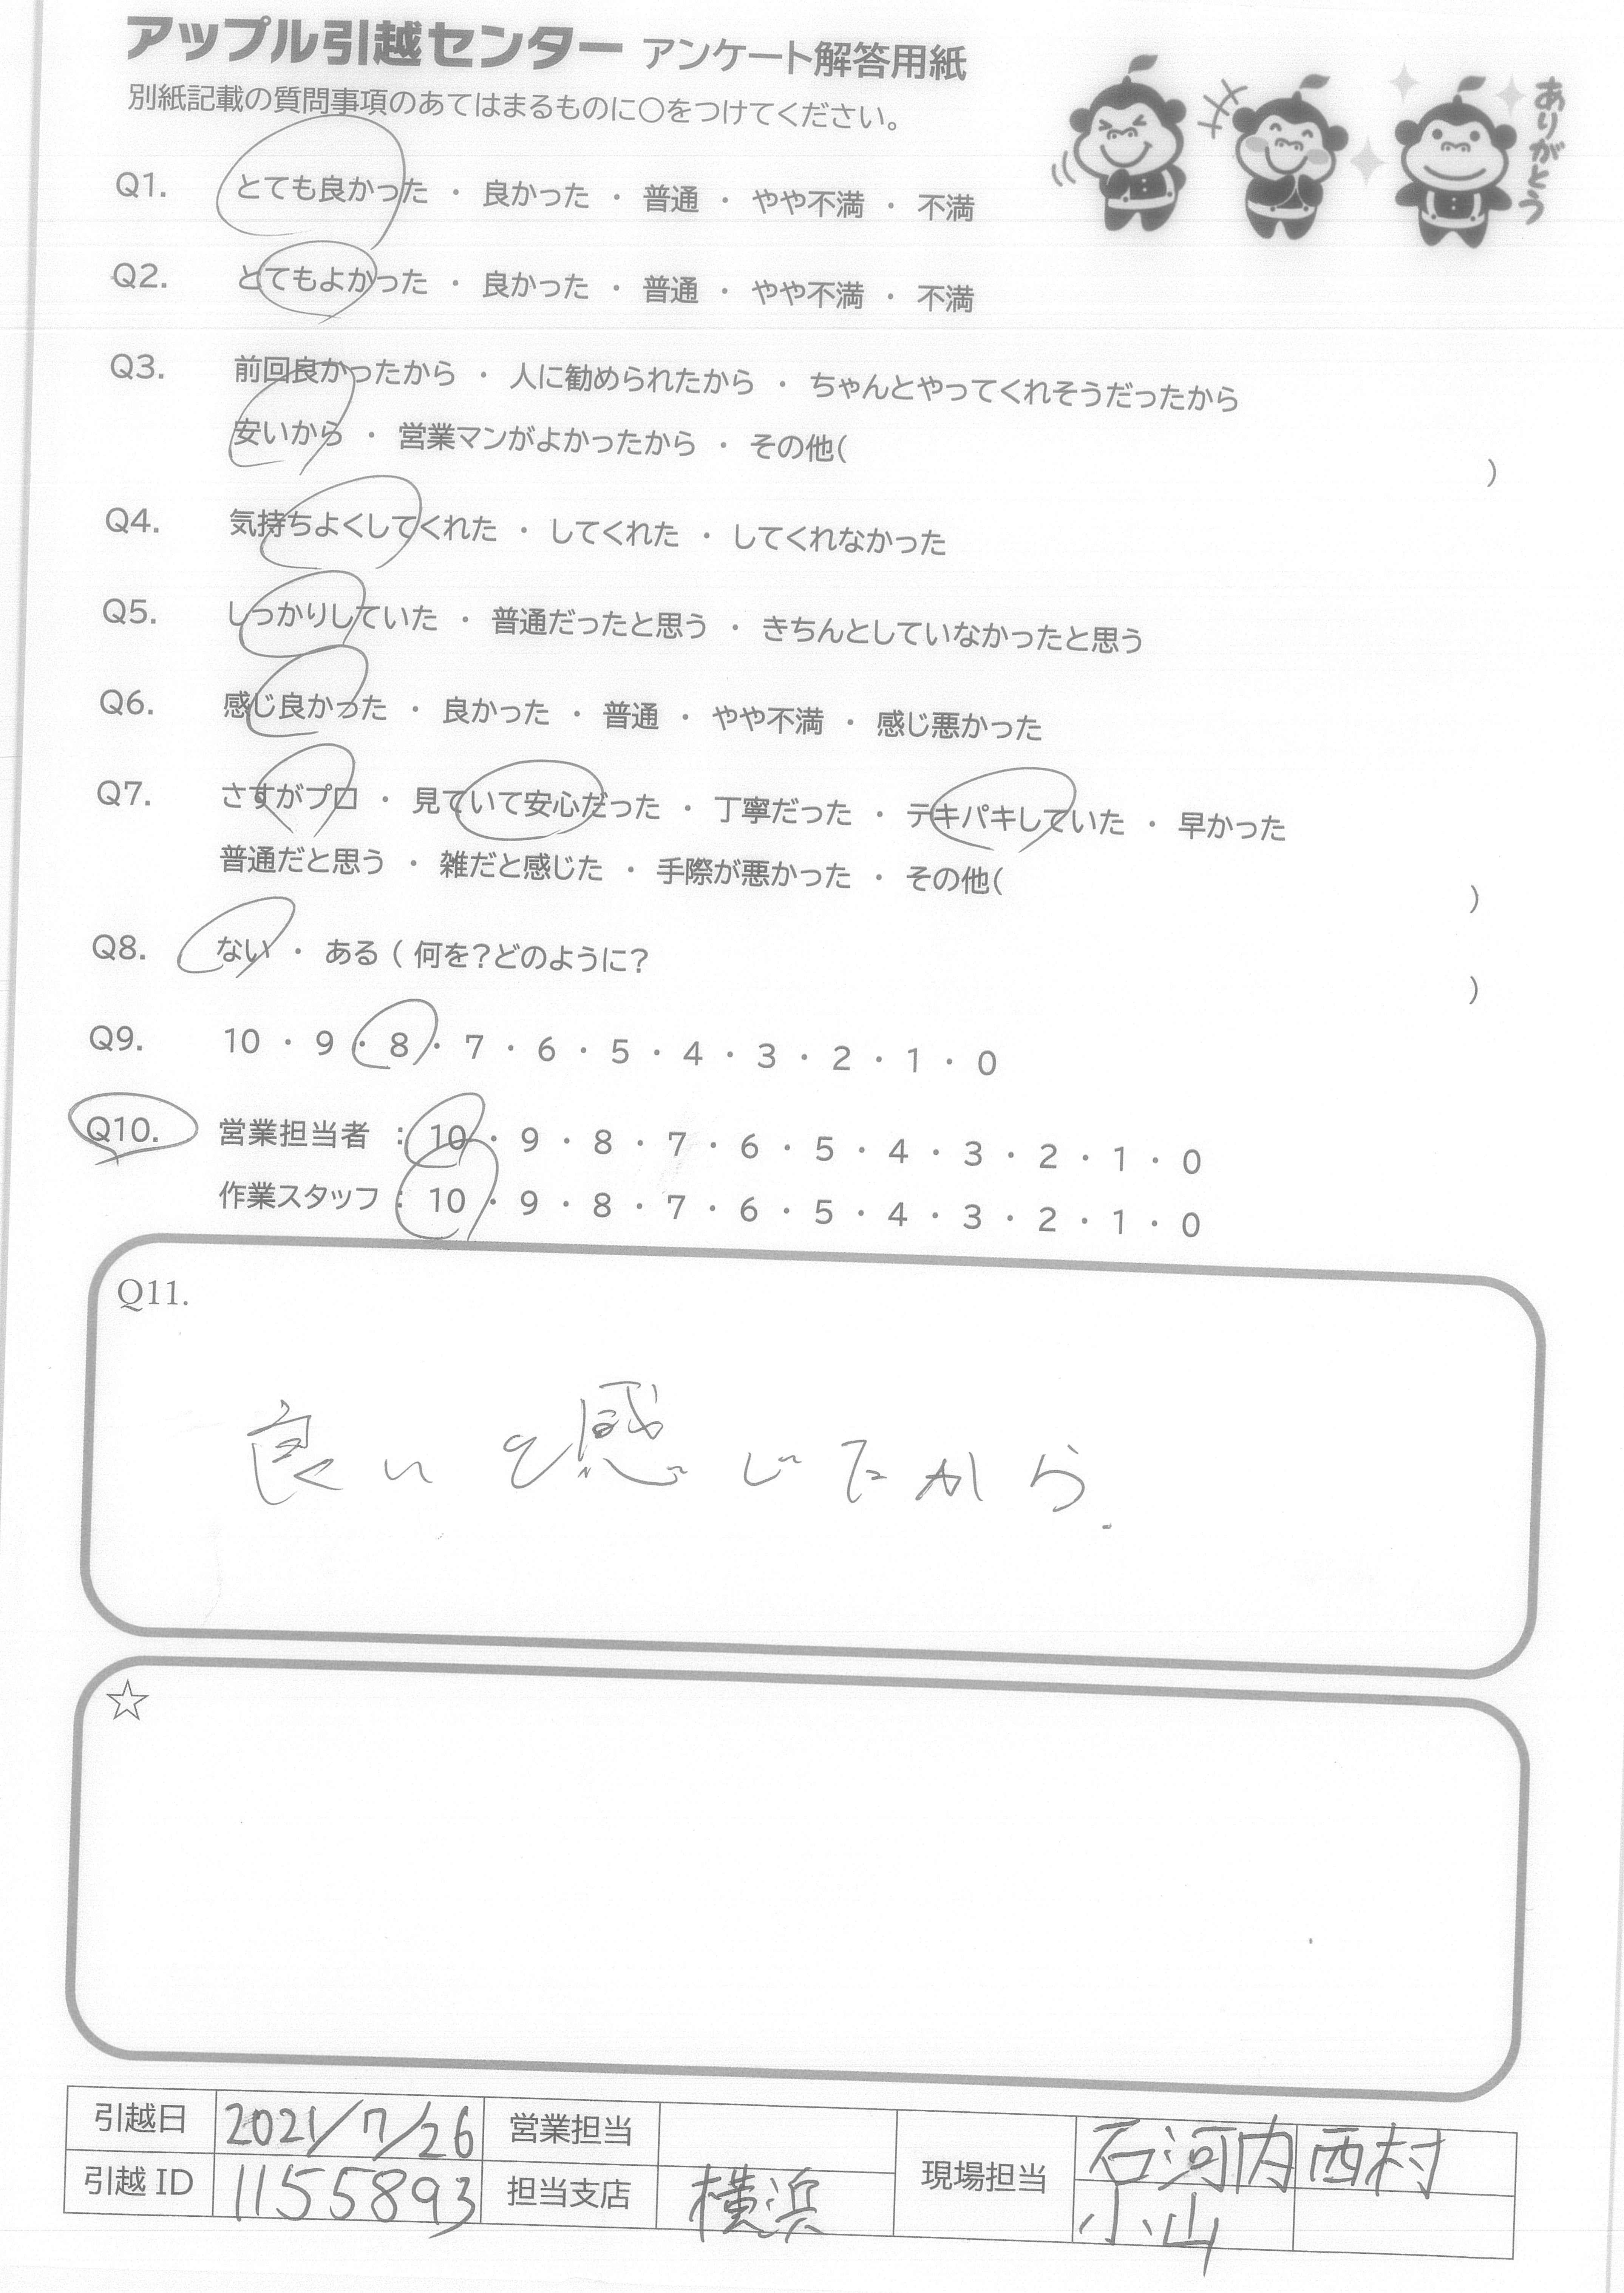 アップル引越センター アンケート解答用紙
別紙記載の質問事項のあてはまるものに〇をつけてください。
ありがとう
Q1. とても良かった ・ 良かった ・ 普通 ・ やや不満 ・ 不満
Q2. とてもよかった ・ 良かった ・ 普通 ・ やや不満 ・ 不満
Q3. 前回良かったから ・ 人に勧められたから ・ ちゃんとやってくれそうだったから
安いから ・ 営業マンがよかったから ・ その他( )
Q4. 気持ちよくしてくれた ・ してくれた ・ してくれなかった
Q5. しっかりしていた ・ 普通だったと思う ・ きちんとしていなかったと思う
Q6. 感じ良かった ・ 良かった ・ 普通 ・ やや不満 ・ 感じ悪かった
Q7. さすがプロ ・ 見ていて安心だった ・ 丁寧だった ・ テキパキしていた ・ 早かった
普通だと思う ・ 雑だと感じた ・ 手際が悪かった ・ その他( )
Q8. ない ・ ある ( 何を?どのように? )
Q9. 10 ・ 9 ・ 8 ・ 7 ・ 6 ・ 5 ・ 4 ・ 3 ・ 2 ・ 1 ・ 0
Q10. 営業担当者 : 10 ・ 9 ・ 8 ・ 7 ・ 6 ・ 5 ・ 4 ・ 3 ・ 2 ・ 1 ・ 0
作業スタッフ : 10 ・ 9 ・ 8 ・ 7 ・ 6 ・ 5 ・ 4 ・ 3 ・ 2 ・ 1 ・ 0
Q11.
良いと感じたから.
☆
引越日 2021/7/26 営業担当 現場担当 石河内 西村
引越 ID 1155893 担当支店 横浜 小山